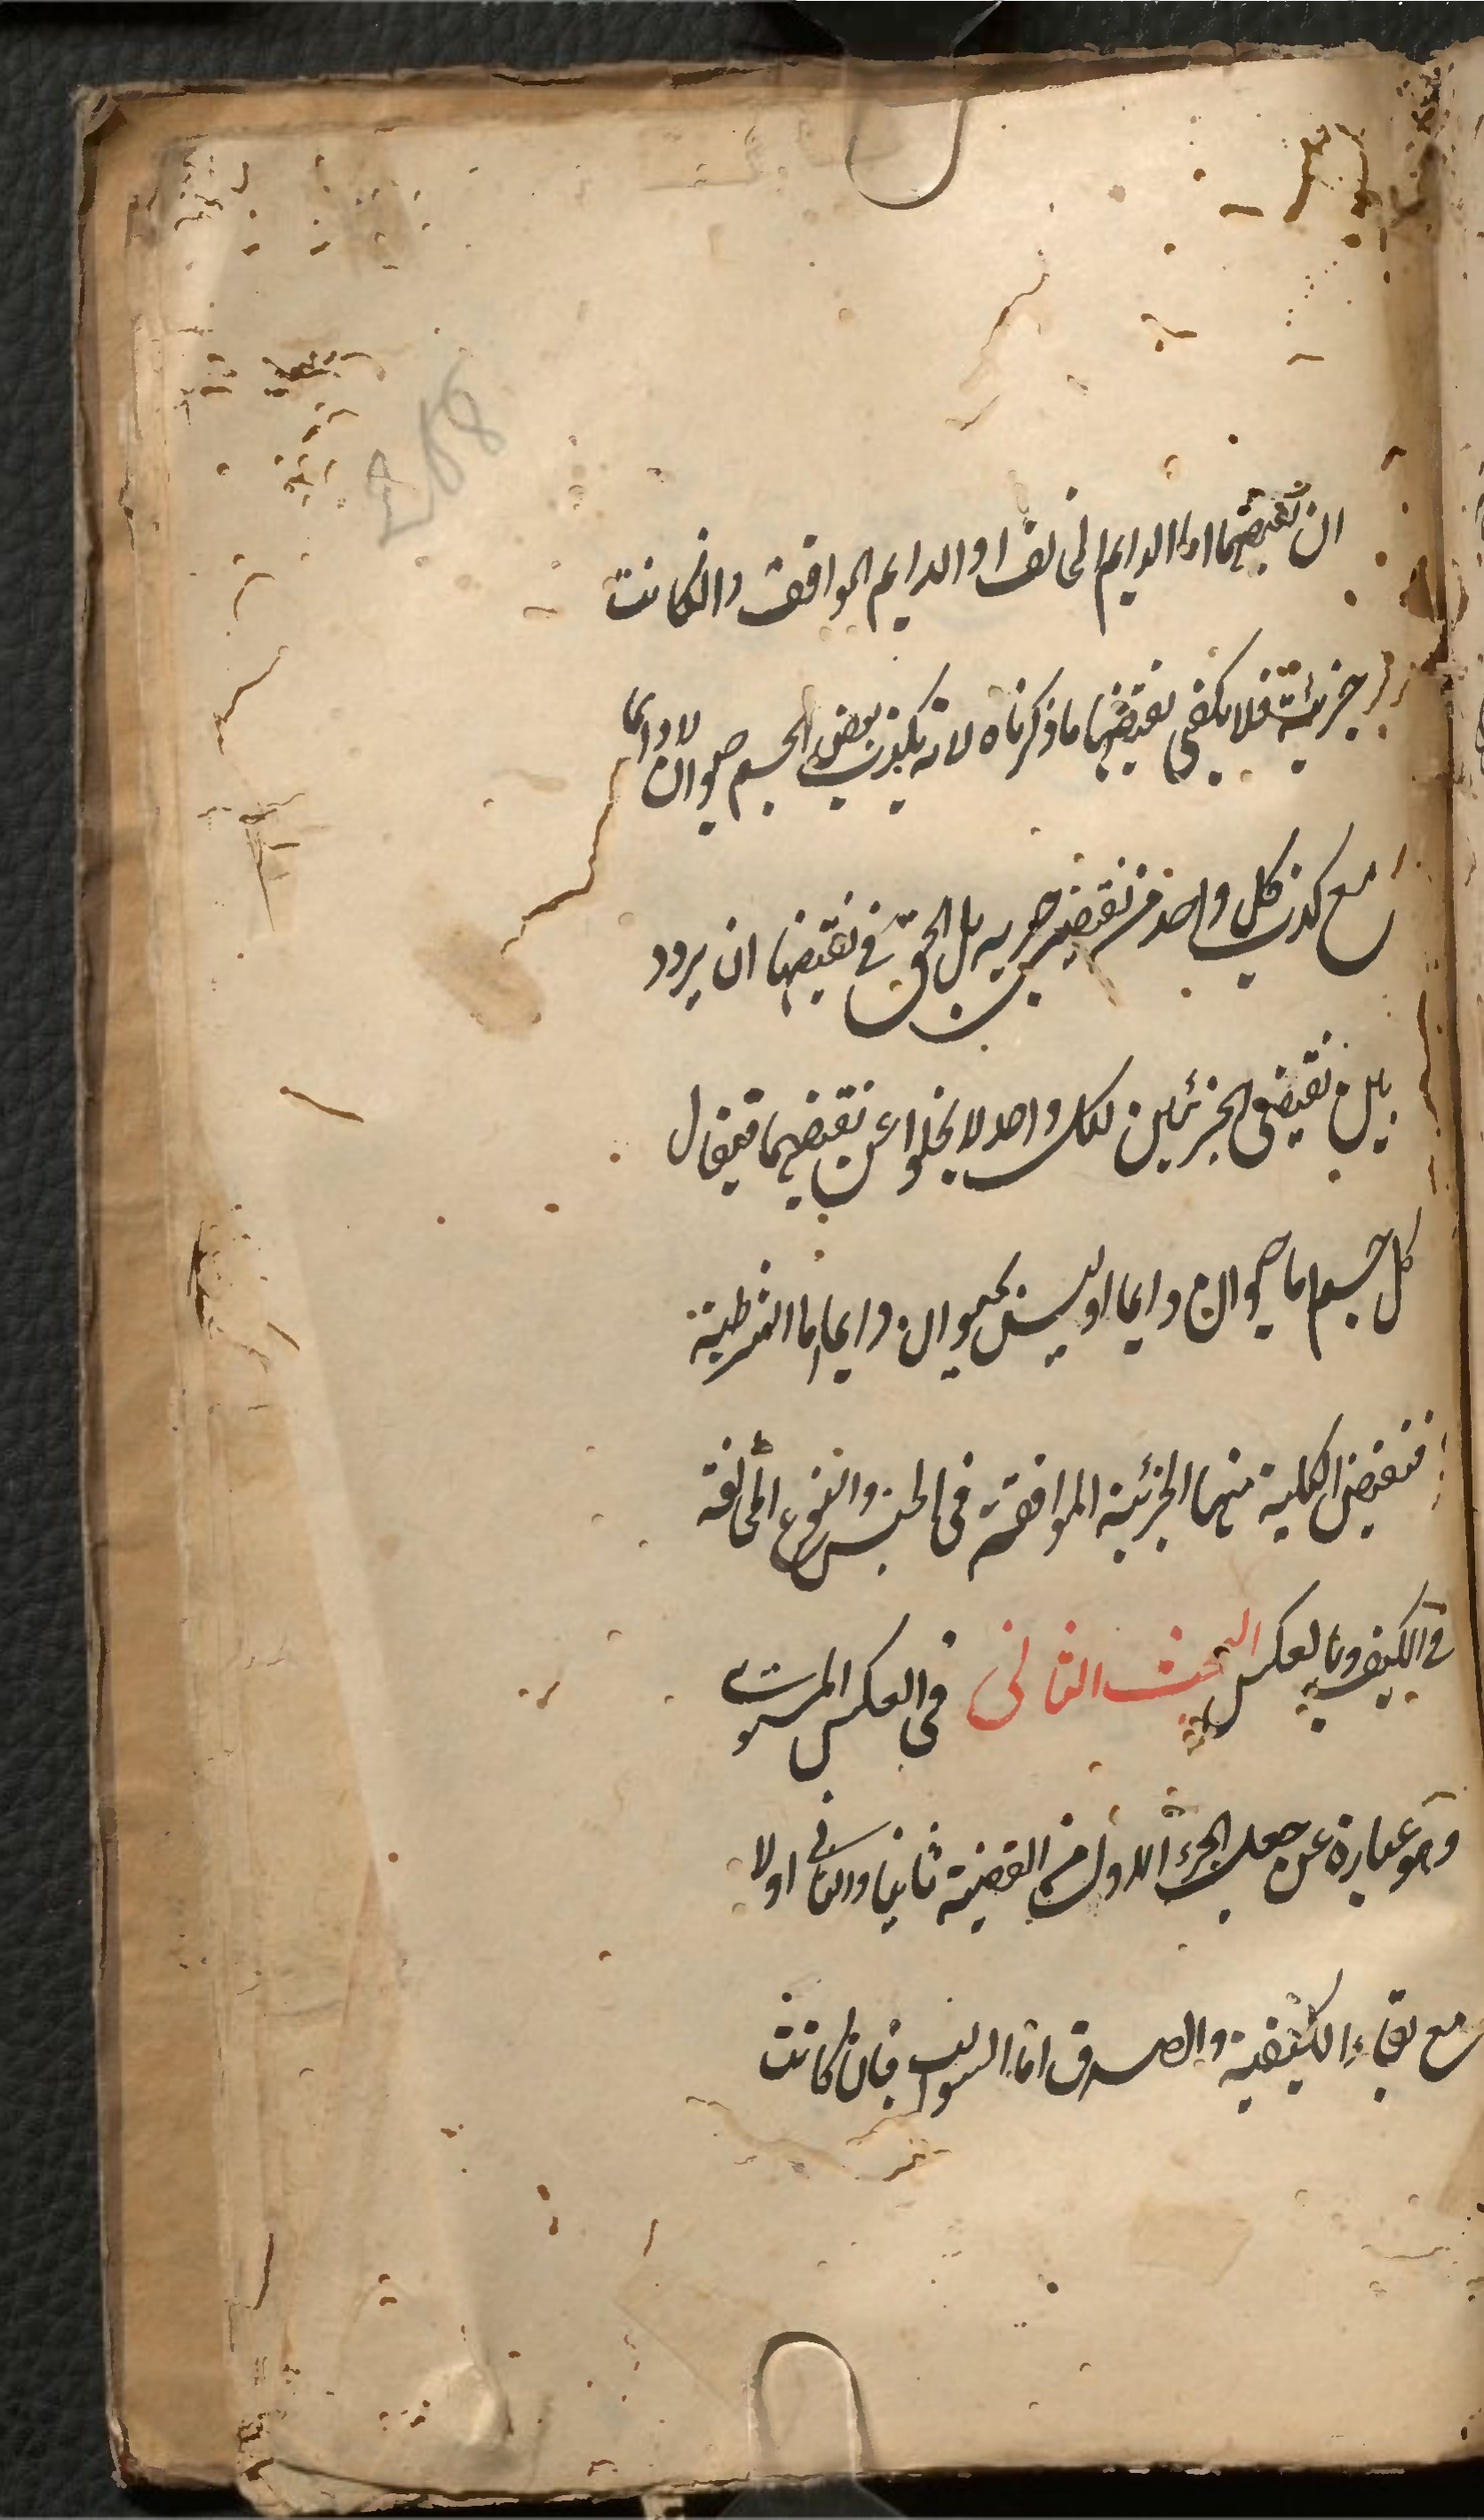 ان نقيضهما اما الدايم المخالف او الدايم الموافق وان كانت
جزئية فلا يكفى نقيضها ما ذكرناه لانه يكذب بعض الجسم حيوان لا دائما
مع كذب كل واحد من نقيضى جزييه بل الحق فى نقيضها ان يردد
بين نقيضى الجزئين لكل واحد واحد لا يخلوا عن نقيضهما فيقال
كل جسم اما حيوان دايما او ليس بحيوان دايما اما الشرطية
فنقيض الكلية منها الجزئية الموافقة فى الجنس والنوع المخالفة
فى الكيف وبالعكس البحث الثانى فى العكس المستوى
وهو عبارة عن جعل الجزء الاول من القضية ثانيا والثانى اولا
مع بقاء الكيفية والصدق اما السوالب فان كانت